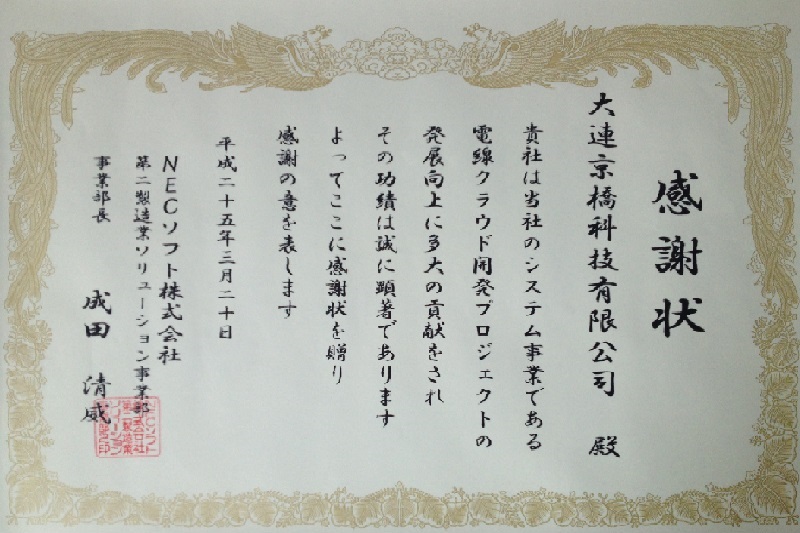 感謝状
大連京橋科技有限公司 殿
貴社は当社のシステム事業である
電線クラウド開発プロジェクトの
発展向上に多大の貢献をされ
その功績は誠に顕著であります
よってここに感謝状を贈り
感謝の意を表します
平成二十五年三月二十日
NECソフト株式会社
第二製造業ソリューション事業部
事業部長 成田 清威